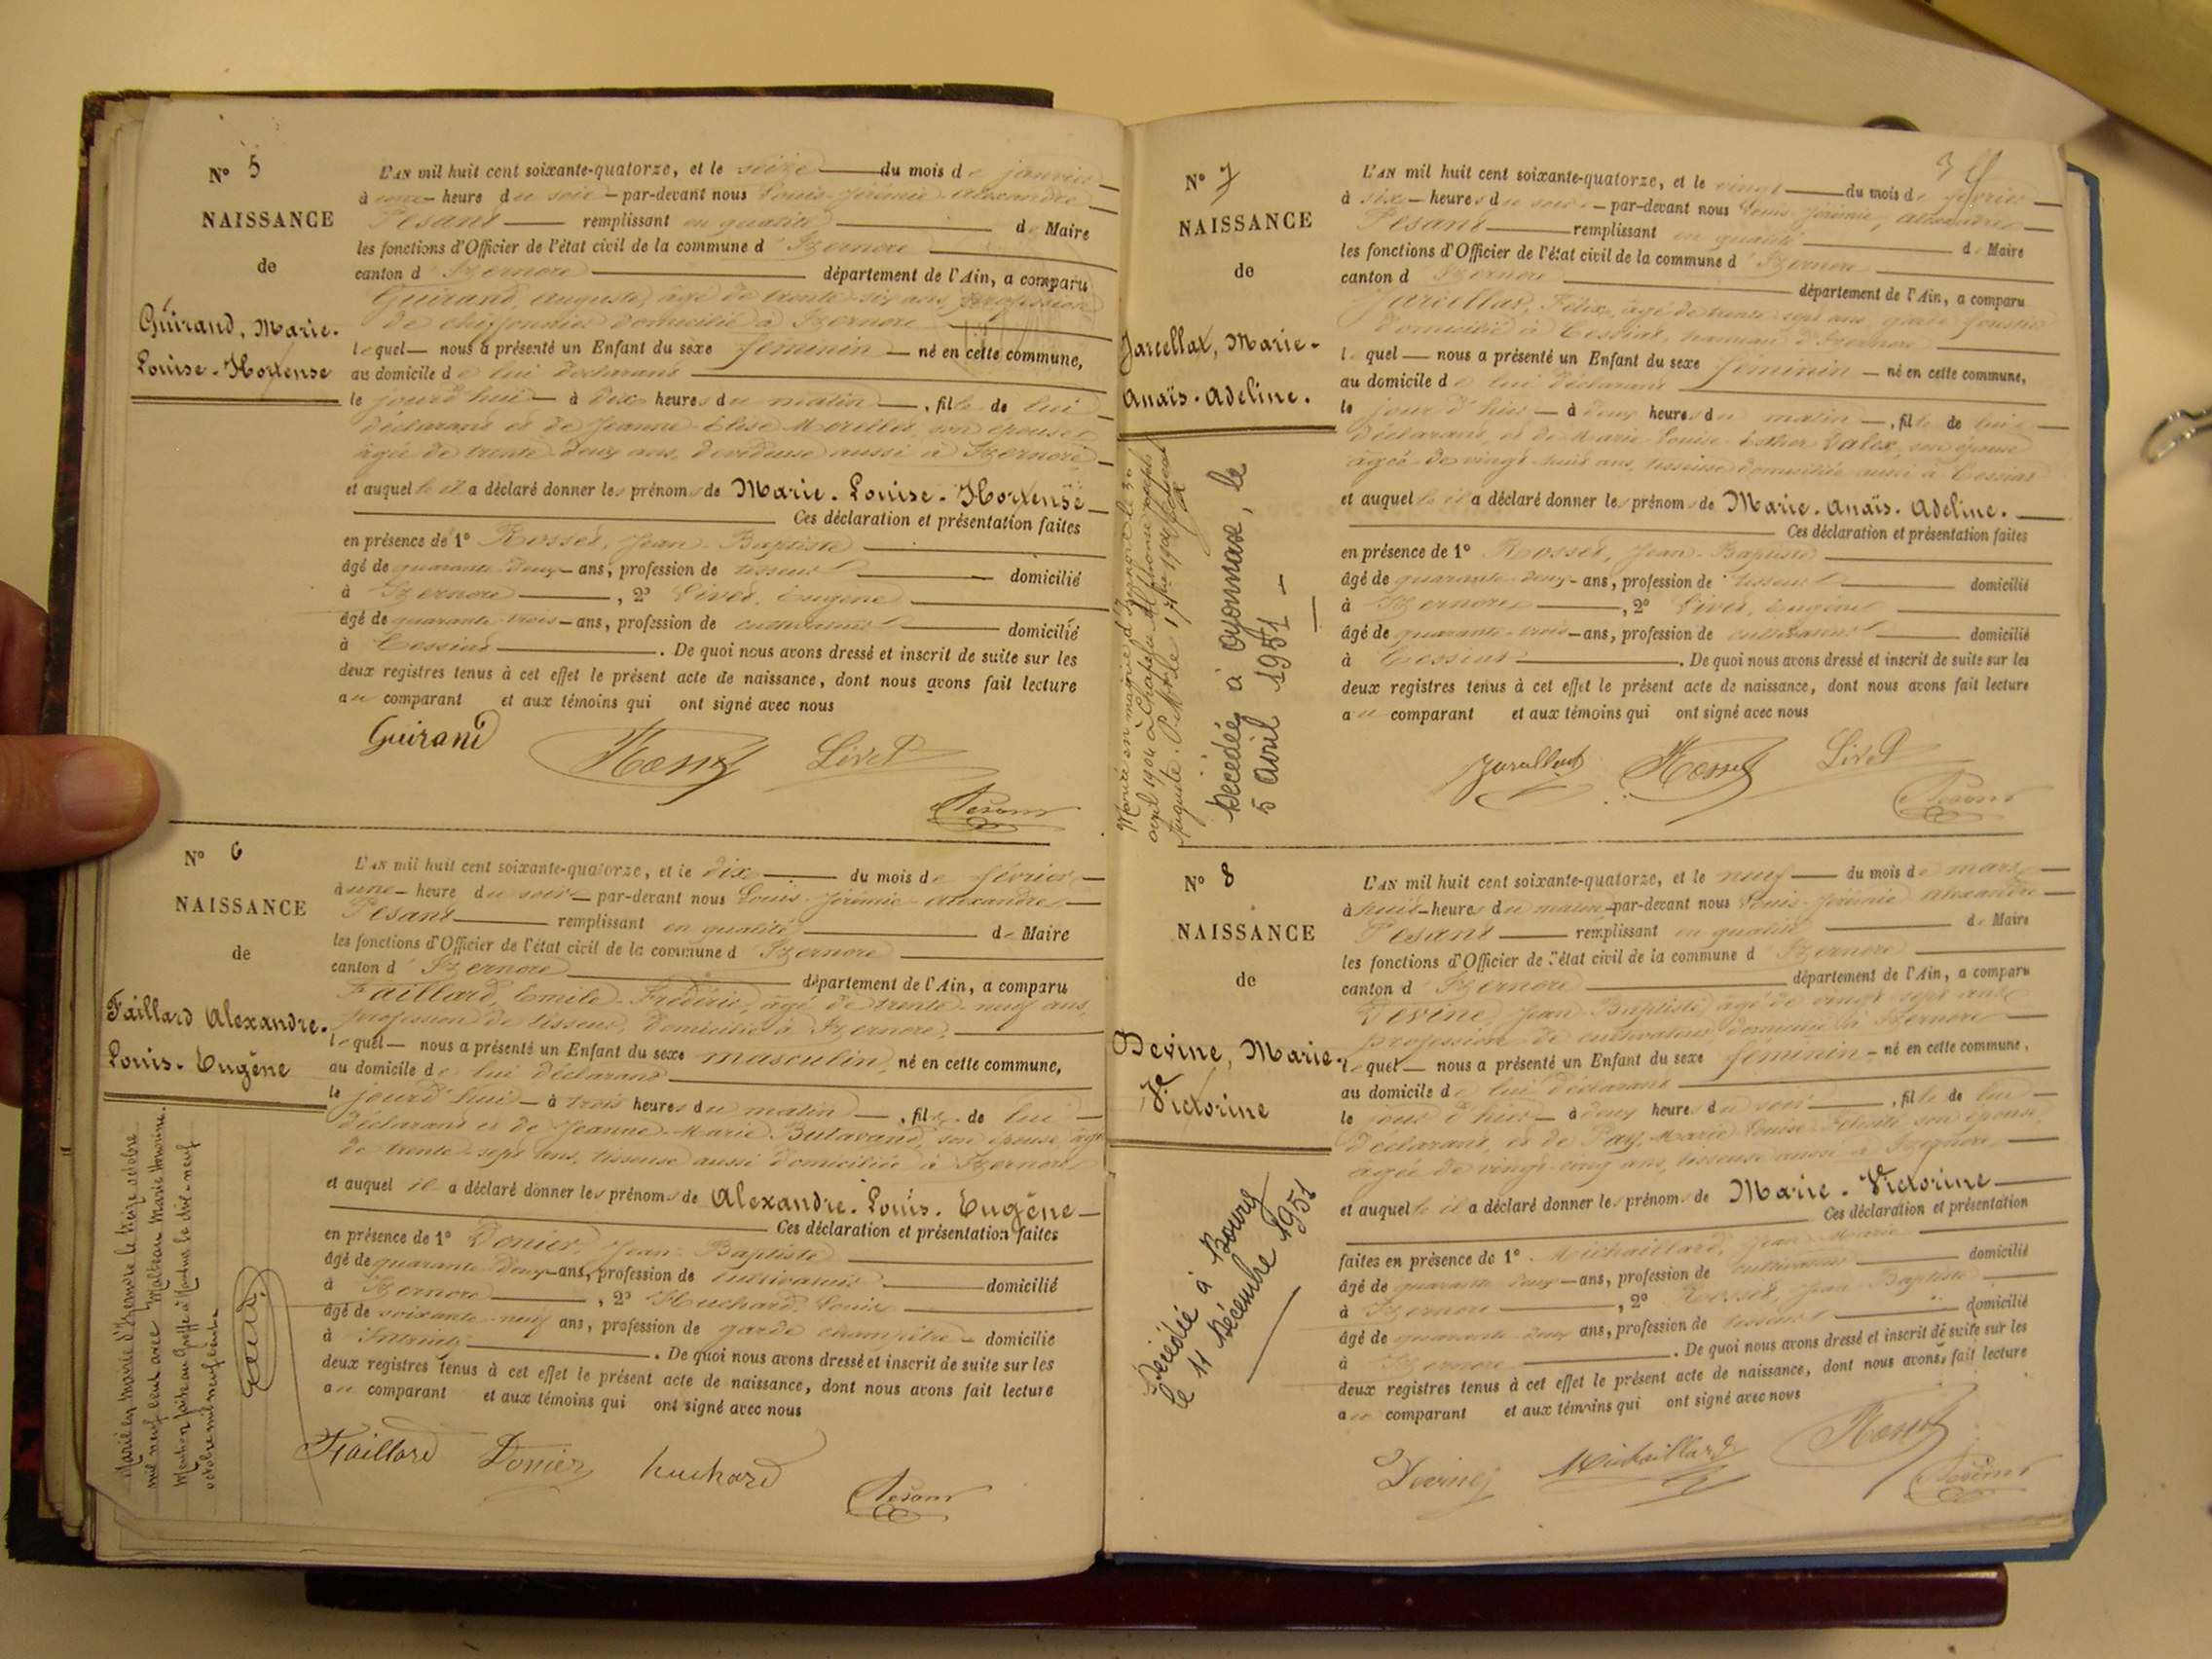 N° 5
NAISSANCE
de
Guirand, Marie-
Louise-Hortense
L'AN mil huit cent soixante-quatorze, et le seize du mois de janvier
à une heure du soir par-devant nous Louis Jérémie Alexandre
Pesant remplissant en qualité de Maire
les fonctions d'Officier de l'état civil de la commune d'Izernore
canton d'Izernore département de l'Ain, a comparu
Guirand, Auguste, âgé de trente six ans, profession
de chiffonnier domicilié à Izernore
lequel nous a présenté un Enfant du sexe féminin né en cette commune,
au domicile de lui déclarant
le jourd'hui à dix heures du matin, fille de lui
déclarant et de Jeanne Elise Morellet, son épouse
âgée de trente deux ans, dévideuse aussi à Izernore
et auquel il a déclaré donner les prénoms de Marie-Louise-Hortense
Ces déclaration et présentation faites
en présence de 1° Rosset, Jean-Baptiste
âgé de quarante deux ans, profession de tisseur domicilié
à Izernore, 2° Livet, Eugène
âgé de quarante trois ans, profession de cultivateur domicilié
à Cessiat. De quoi nous avons dressé et inscrit de suite sur les
deux registres tenus à cet effet le présent acte de naissance, dont nous avons fait lecture
au comparant et aux témoins qui ont signé avec nous
Guirand Rosset Livet
Pesant
N° 6
NAISSANCE
de
Faillard Alexandre-
Louis-Eugène
Marié en mairie d'Izernore le treize octobre
mil neuf cent avec Maltrau Marie
Mention faite au Greffe à Nantua le dix-neuf
octobre mil neuf cent
L'AN mil huit cent soixante-quatorze, et le dix du mois de février
à une heure du soir par-devant nous Louis Jérémie Alexandre
Pesant remplissant en qualité de Maire
les fonctions d'Officier de l'état civil de la commune d'Izernore
canton d'Izernore département de l'Ain, a comparu
Faillard, Emile Frédéric, âgé de trente neuf ans,
profession de tisseur, domicilié à Izernore,
lequel nous a présenté un Enfant du sexe masculin, né en cette commune,
au domicile de lui déclarant
le jourd'hui à trois heures du matin, fils de lui
déclarant et de Jeanne-Marie Butavand, son épouse âgée
de trente sept ans, tisseuse aussi domiciliée à Izernore
et auquel il a déclaré donner les prénoms de Alexandre-Louis-Eugène
Ces déclaration et présentation faites
en présence de 1° Donier, Jean-Baptiste
âgé de quarante deux ans, profession de cultivateur domicilié
à Izernore, 2° Huchard, Louis
âgé de soixante neuf ans, profession de garde champêtre domicilié
à Intriat. De quoi nous avons dressé et inscrit de suite sur les
deux registres tenus à cet effet le présent acte de naissance, dont nous avons fait lecture
au comparant et aux témoins qui ont signé avec nous
Faillard Donier huchard
Pesant
N° 7
NAISSANCE
de
Jarcellat, Marie-
Anaïs-Adeline.
Mariée en mairie d'Izernore le
avril 1904 à Chapelu Alphonse Joseph
Auguste.
Décédée à Oyonnax, le
5 avril 1951
L'AN mil huit cent soixante-quatorze, et le vingt du mois de février
à six heures du soir par-devant nous Louis Jérémie, Alexandre
Pesant remplissant en qualité de Maire
les fonctions d'Officier de l'état civil de la commune d'Izernore
canton d'Izernore département de l'Ain, a comparu
Jarcellat, Félix, âgé de trente sept ans, garde forestier
domicilié à Cessiat, hameau d'Izernore
lequel nous a présenté un Enfant du sexe féminin né en cette commune,
au domicile de lui déclarant
le jour d'hier à deux heures du matin, fille de lui
déclarant, et de Marie Louise Esther Valex, son épouse
âgée de vingt huit ans, tisseuse domiciliée aussi à Cessiat
et auquel il a déclaré donner les prénoms de Marie-Anaïs-Adeline.
Ces déclaration et présentation faites
en présence de 1° Rosset, Jean-Baptiste
âgé de quarante deux ans, profession de tisseur domicilié
à Izernore, 2° Livet, Eugène
âgé de quarante trois ans, profession de cultivateur domicilié
à Cessiat. De quoi nous avons dressé et inscrit de suite sur les
deux registres tenus à cet effet le présent acte de naissance, dont nous avons fait lecture
au comparant et aux témoins qui ont signé avec nous
Jarcellat Rosset Livet
Pesant
N° 8
NAISSANCE
de
Devine, Marie-
Victorine
Décédée à Bourg
le 11 décembre 1951
L'AN mil huit cent soixante-quatorze, et le neuf du mois de mars
à huit heures du matin par-devant nous Louis Jérémie Alexandre
Pesant remplissant en qualité de Maire
les fonctions d'Officier de l'état civil de la commune d'Izernore
canton d'Izernore département de l'Ain, a comparu
Devine, Jean Baptiste, âgé de vingt sept ans,
profession de cultivateur, domicilié à Izernore
lequel nous a présenté un Enfant du sexe féminin né en cette commune,
au domicile de lui déclarant
le jour d'hier à deux heures du soir, fille de lui
déclarant, et de Pay, Marie Louise Félicité son épouse
âgée de vingt cinq ans, tisseuse aussi à Izernore
et auquel il a déclaré donner les prénoms de Marie-Victorine
Ces déclaration et présentation
faites en présence de 1° Michaillard, Jean Marie
âgé de quarante deux ans, profession de cultivateur domicilié
à Izernore, 2° Rosset, Jean Baptiste
âgé de quarante deux ans, profession de tisseur domicilié
à Izernore. De quoi nous avons dressé et inscrit de suite sur les
deux registres tenus à cet effet le présent acte de naissance, dont nous avons fait lecture
au comparant et aux témoins qui ont signé avec nous
Devine Michaillard Rosset
Pesant